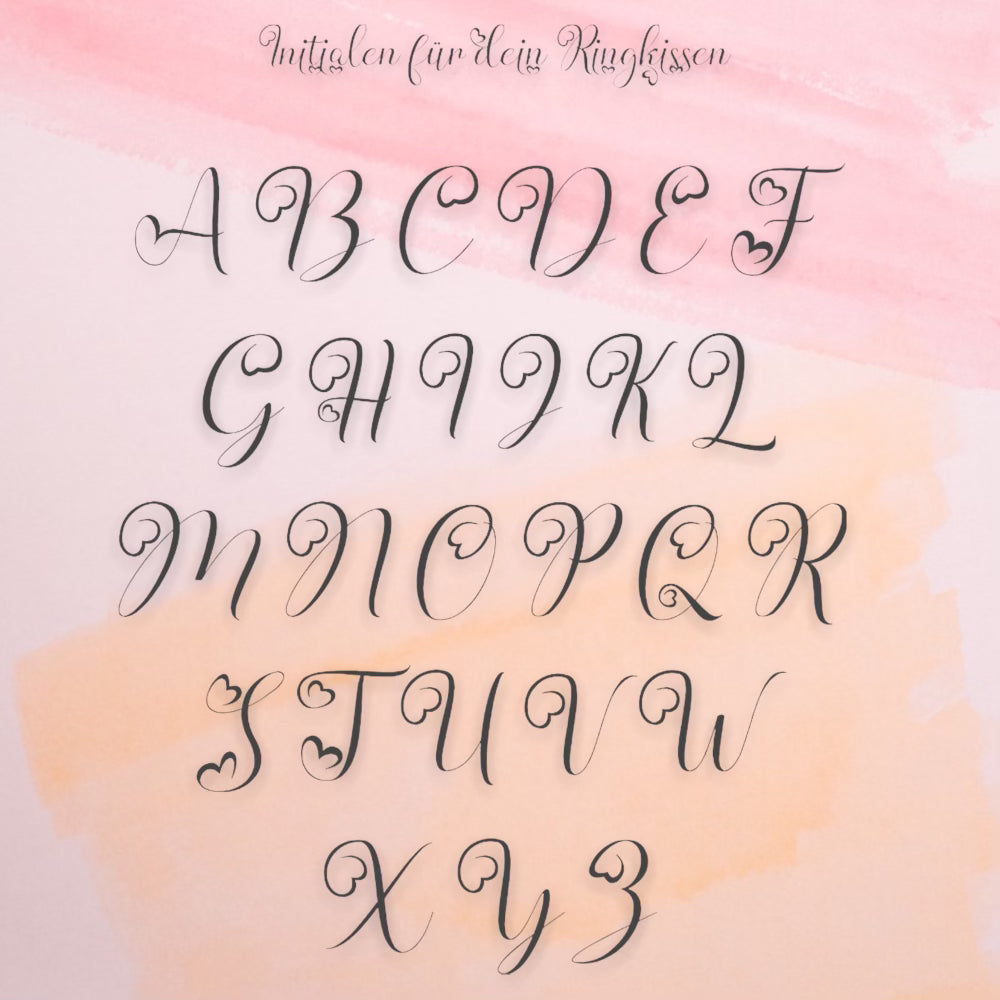 Initialen für dein Ringkissen
A B C D E F
G H I J K L
M N O P Q R
S T U V W
X Y Z